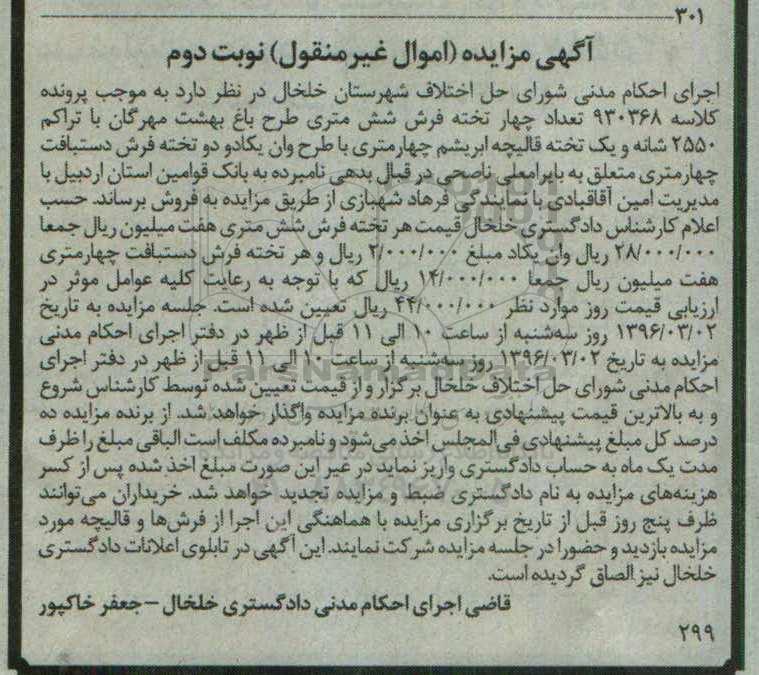 ۳۰۱
آگهی مزایده (اموال غیرمنقول) نوبت دوم
اجرای احکام مدنی شورای حل اختلاف شهرستان خلخال در نظر دارد به موجب پرونده
کلاسه ۹۳۰۳۶۸ تعداد چهار تخته فرش شش متری طرح باغ بهشت مهرگان با تراکم
۲۵۵۰ شانه و یک تخته قالیچه ابریشم چهارمتری با طرح وان یکادو دو تخته فرش دستبافت
چهارمتری متعلق به بایرامعلی ناصحی در قبال بدهی نامبرده به بانک قوامین استان اردبیل با
مدیریت امین آقاقبادی با نمایندگی فرهاد شهبازی از طریق مزایده به فروش برساند. حسب
اعلام کارشناس دادگستری خلخال قیمت هر تخته فرش شش متری هفت میلیون ریال جمعا
۲۸/۰۰۰/۰۰۰ ریال وان یکاد مبلغ ۲/۰۰۰/۰۰۰ ریال و هر تخته فرش دستبافت چهارمتری
هفت میلیون ریال جمعا ۱۴/۰۰۰/۰۰۰ ریال که با توجه به رعایت کلیه عوامل موثر در
ارزیابی قیمت روز موارد نظر ۴۴/۰۰۰/۰۰۰ ریال تعیین شده است. جلسه مزایده به تاریخ
۱۳۹۶/۰۳/۰۲ روز سه‌شنبه از ساعت ۱۰ الی ۱۱ قبل از ظهر در دفتر اجرای احکام مدنی
مزایده به تاریخ ۱۳۹۶/۰۳/۰۲ روز سه‌شنبه از ساعت ۱۰ الی ۱۱ قبل از ظهر در دفتر اجرای
احکام مدنی شورای حل اختلاف خلخال برگزار و از قیمت تعیین شده توسط کارشناس شروع
و به بالاترین قیمت پیشنهادی به عنوان برنده مزایده واگذار خواهد شد. از برنده مزایده ده
درصد کل مبلغ پیشنهادی فی‌المجلس اخذ می‌شود و نامبرده مکلف است الباقی مبلغ را ظرف
مدت یک ماه به حساب دادگستری واریز نماید در غیر این صورت مبلغ اخذ شده پس از کسر
هزینه‌های مزایده به نام دادگستری ضبط و مزایده تجدید خواهد شد. خریداران می‌توانند
ظرف پنج روز قبل از تاریخ برگزاری مزایده با هماهنگی این اجرا از فرش‌ها و قالیچه مورد
مزایده بازدید و حضورا در جلسه مزایده شرکت نمایند. این آگهی در تابلوی اعلانات دادگستری
خلخال نیز الصاق گردیده است.
قاضی اجرای احکام مدنی دادگستری خلخال – جعفر خاکپور
۲۹۹
ParsNamadData